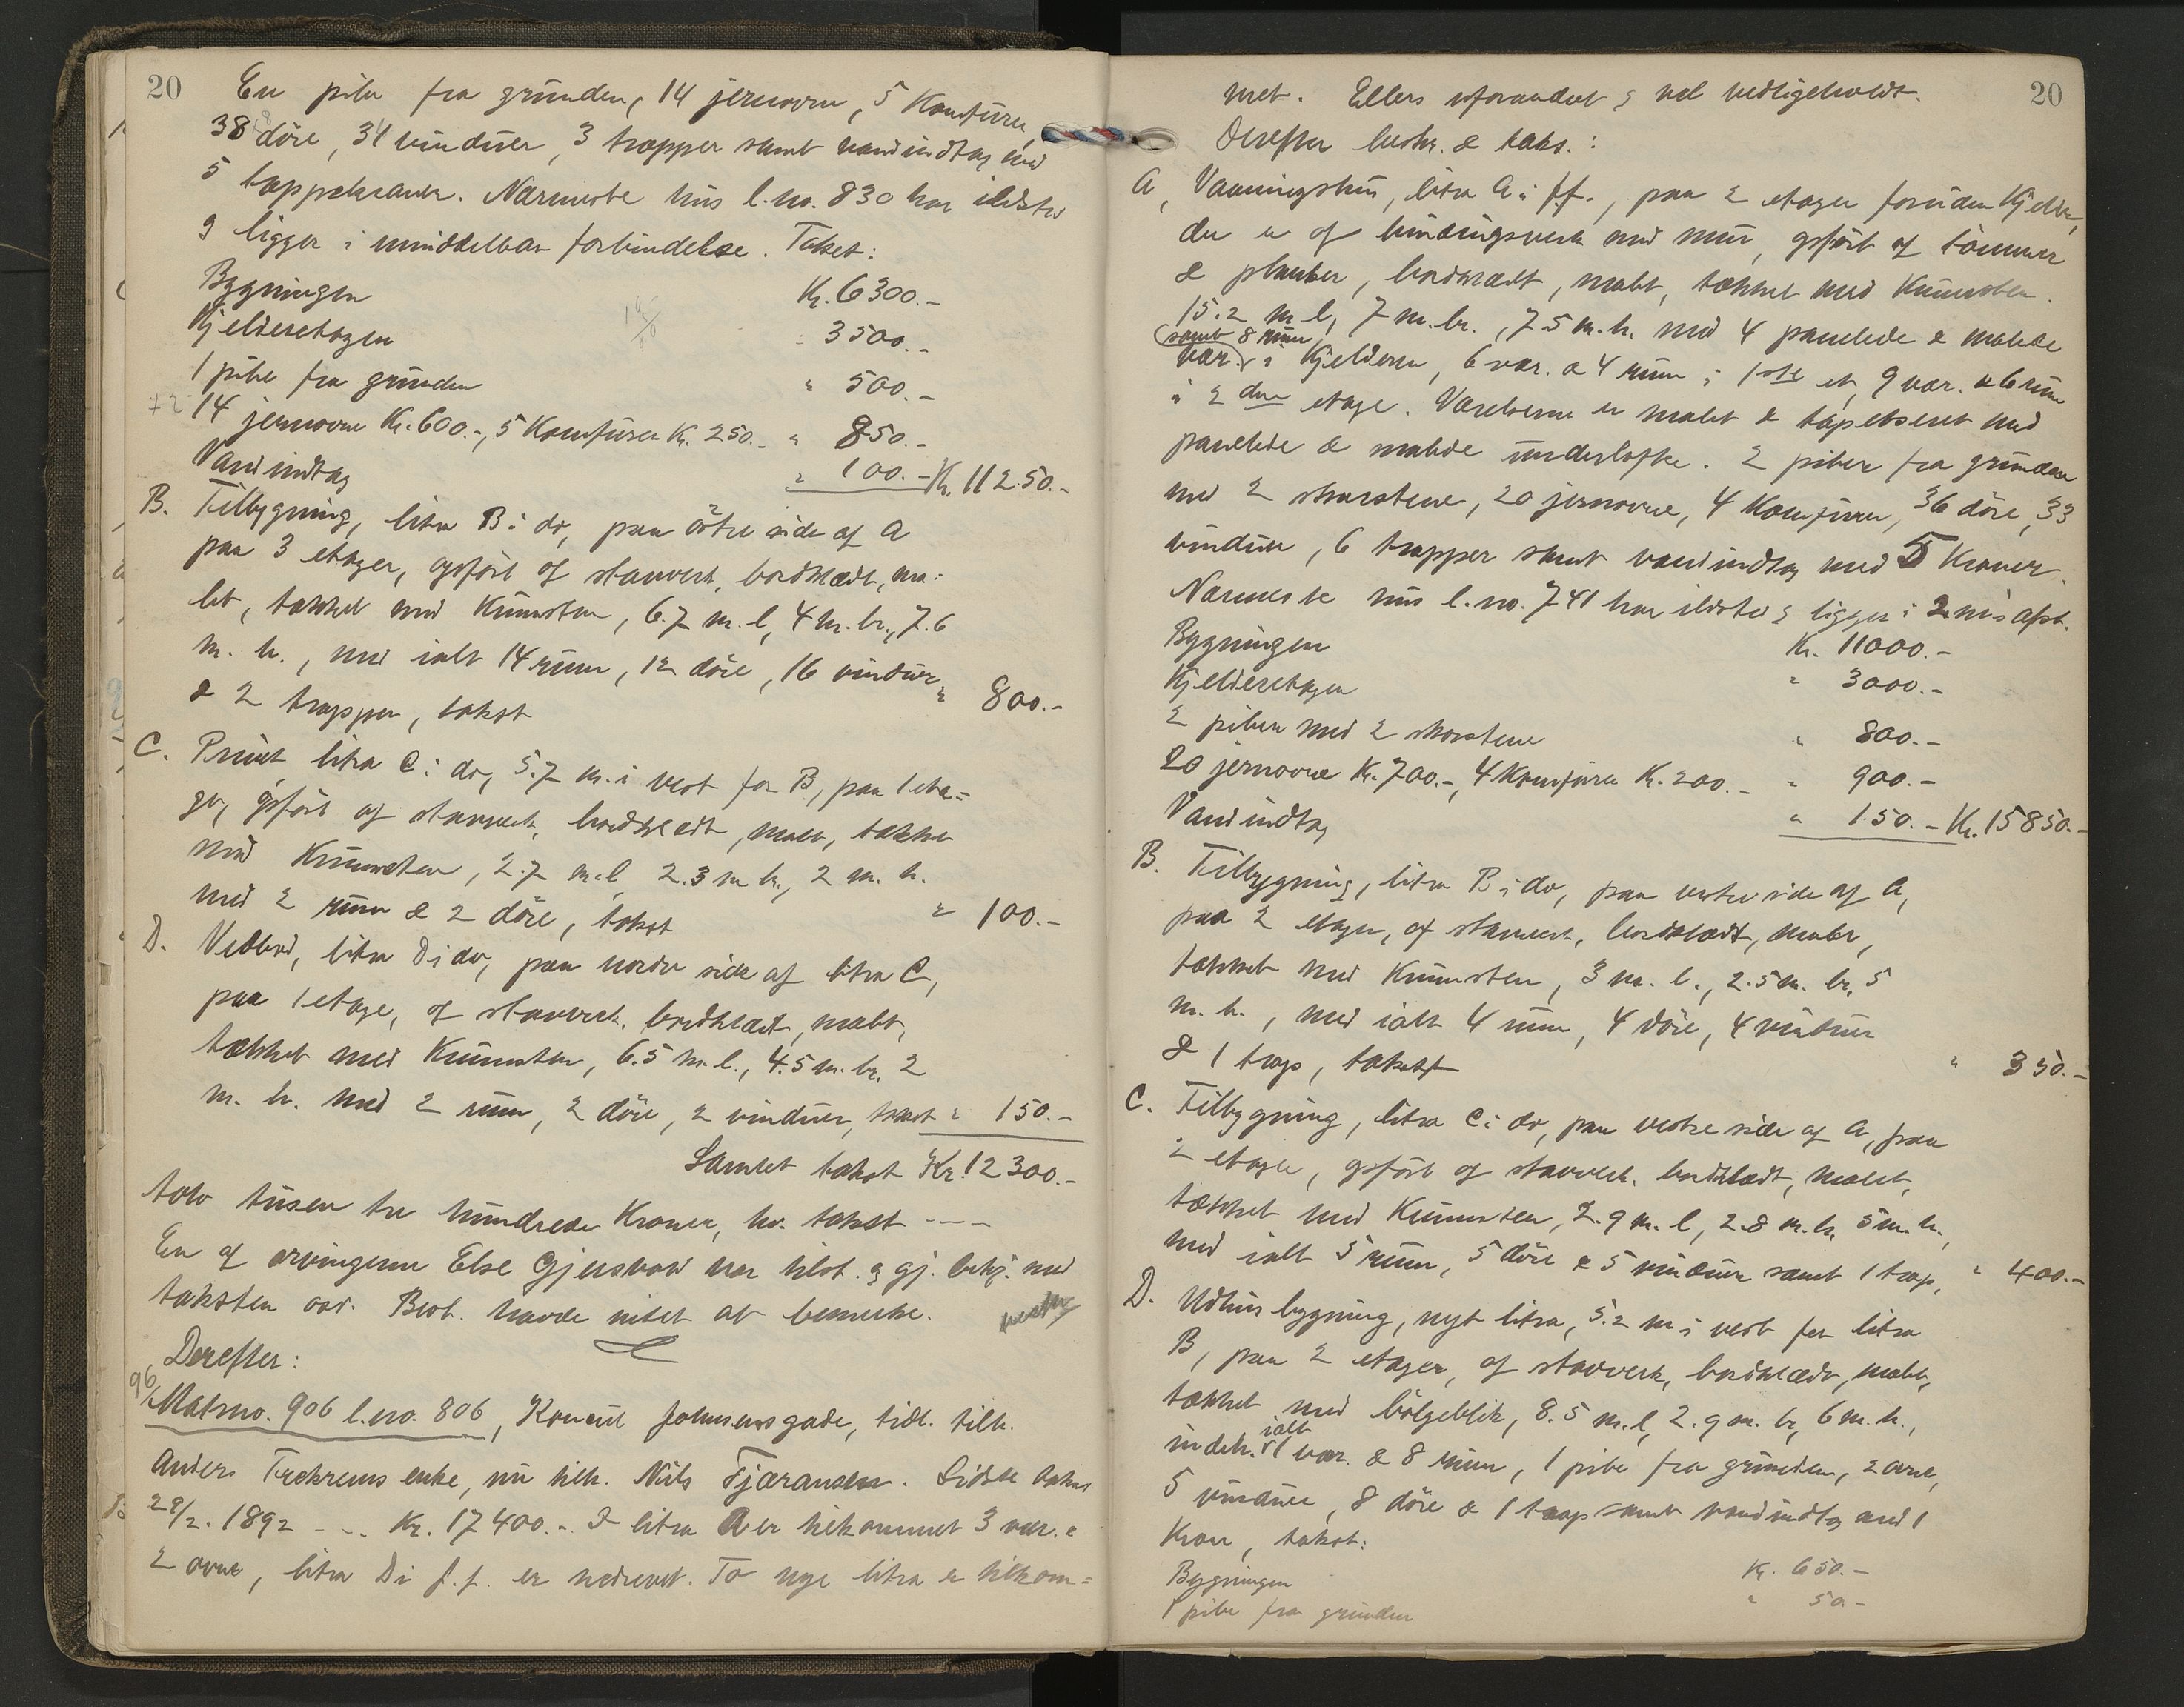 20
En pibe fra grunden, 14 jernovne, 5 Komfurer,
38 döre, 34 vinduer, 3 trapper samt vandindtag med
5 tappekraner. Nærmeste hus l.no. 830 har ildsted
& ligger i umiddelbar forbindelse. Takst:
Bygningen Kr. 6300.-
Kjelderetagen " 3500.-
1 pibe fra grunden " 500.-
14 jernovne Kr. 600.-, 5 Komfurer Kr. 250.- " 850.-
Vandindtag " 100.- Kr. 11250.-
B. Tilbygning, litra B i do, paa östre side af A
paa 3 etager, opfört af stavverk, bordklædt, ma=
let, tækket med Kunststen, 6.7 m. l, 4 m. br., 7.6
m. h., med ialt 14 rum, 12 döre, 16 vinduer
& 2 trapper, takst " 800.-
C. Privet litra C i do, 5.7 m. i vest for B, paa 1 eta=
ge, opfört af stavverk, bordklædt, malt, tækket
med Kunststen, 2.7 m. l 2.3 m br., 2 m. h.
med 2 rum & 2 döre, takst " 100.-
D. Vedbod, litra D i do, paa nordre side af litra C,
paa 1 etage, af stavverk, bordklædt, malt,
tækket med Kunststen, 6.5 m. l., 4.5 m. br. 2
m. h. med 2 rum, 2 döre, 2 vinduer, takst " 150.-
Samlet takst Kr. 12300.-
tolv tusen tre hundrede Kroner, hv. takst ---
En af arvingerne Else Gjersvold var tilst. & gj. bekj. med
taksten
Best. havde intet at bemerke.
Derefter:
96/ Matrno. 906 l.no. 806, Konsul Johnsensgade, tidl. tilh.
Anders Trekrems enke, nu tilh. Nils Fjæransen. Sidste takst
29/2. 1892 --- Kr. 17400.- I litra A er tilkommet 3 vær. &
2 ovne, litra D i f.f. er nedrevet. To nye litra er tilkom=
20
met. Ellers uforandret & vel vedligeholdt.
Derefter beskr. & takst.:
A, Vaaningshus, litra A i ff., paa 2 etager foruden Kjelder,
der er af bindingsverk med mur, opfört af tömmer
& planker, bordklædt, malt, tækket med Kunststen.
15.2 m l, 7 m. br., 7.5 m. h. med 4 panelede & malede
(samt 8 rum)
vær. i Kjelderen, 6 vær. & 4 rum i 1ste et, 9 vær. & 6 rum
i 2den etage. Værelserne er malet & tapetseret med
panelede & malede underlofte. 2 piber fra grunden
med 2 skorstene, 20 jernovne, 4 Komfurer, 36 döre, 33
vinduer, 6 trapper samt vandindtag med 5 Kraner.
Nærmeste hus l.no. 741 har ildsted & ligger i 2 m's afst.
Bygningen Kr. 11000.-
Kjelderetagen " 3000.-
2 piber med 2 skorstene " 800.-
20 jernovne Kr. 700.-, 4 Komfurer Kr. 200.- " 900.-
Vandindtag " 150.- Kr. 15850.-
B. Tilbygning, litra B i do, paa vestre side af A,
paa 2 etager, af stavverk, bordklædt, malet,
tækket med Kunststen, 3 m. l., 2.5 m. br, 5
m. h., med ialt 4 rum, 4 döre, 4 vinduer
& 1 trap, takst " 350.-
C. Tilbygning, litra C i do, paa vestre side af A, paa
2 etager, opfört af stavverk. bordklædt, malet,
tækket med Kunststen, 2.9 m. l, 2.8 m. br 5 m. h.,
med ialt 5 rum, 5 döre & 5 vinduer samt 1 trap, " 400.-
D. Udhusbygning, nyt litra, 5.2 m i vest for litra
B, paa 2 etager, af stavverk, bordklædt, malt,
tækket med bölgeblik, 8.5 m. l, 2.9 m. br, 6 m. h.,
ialt
indeh. 1 vær. & 8 rum, 1 pibe fra grunden, 2 ovne,
5 vinduer, 8 döre & 1 trap samt vandindtag med 1
Kran, takst:
Bygningen Kr. 650.-
1 pibe fra grunden " 50.-